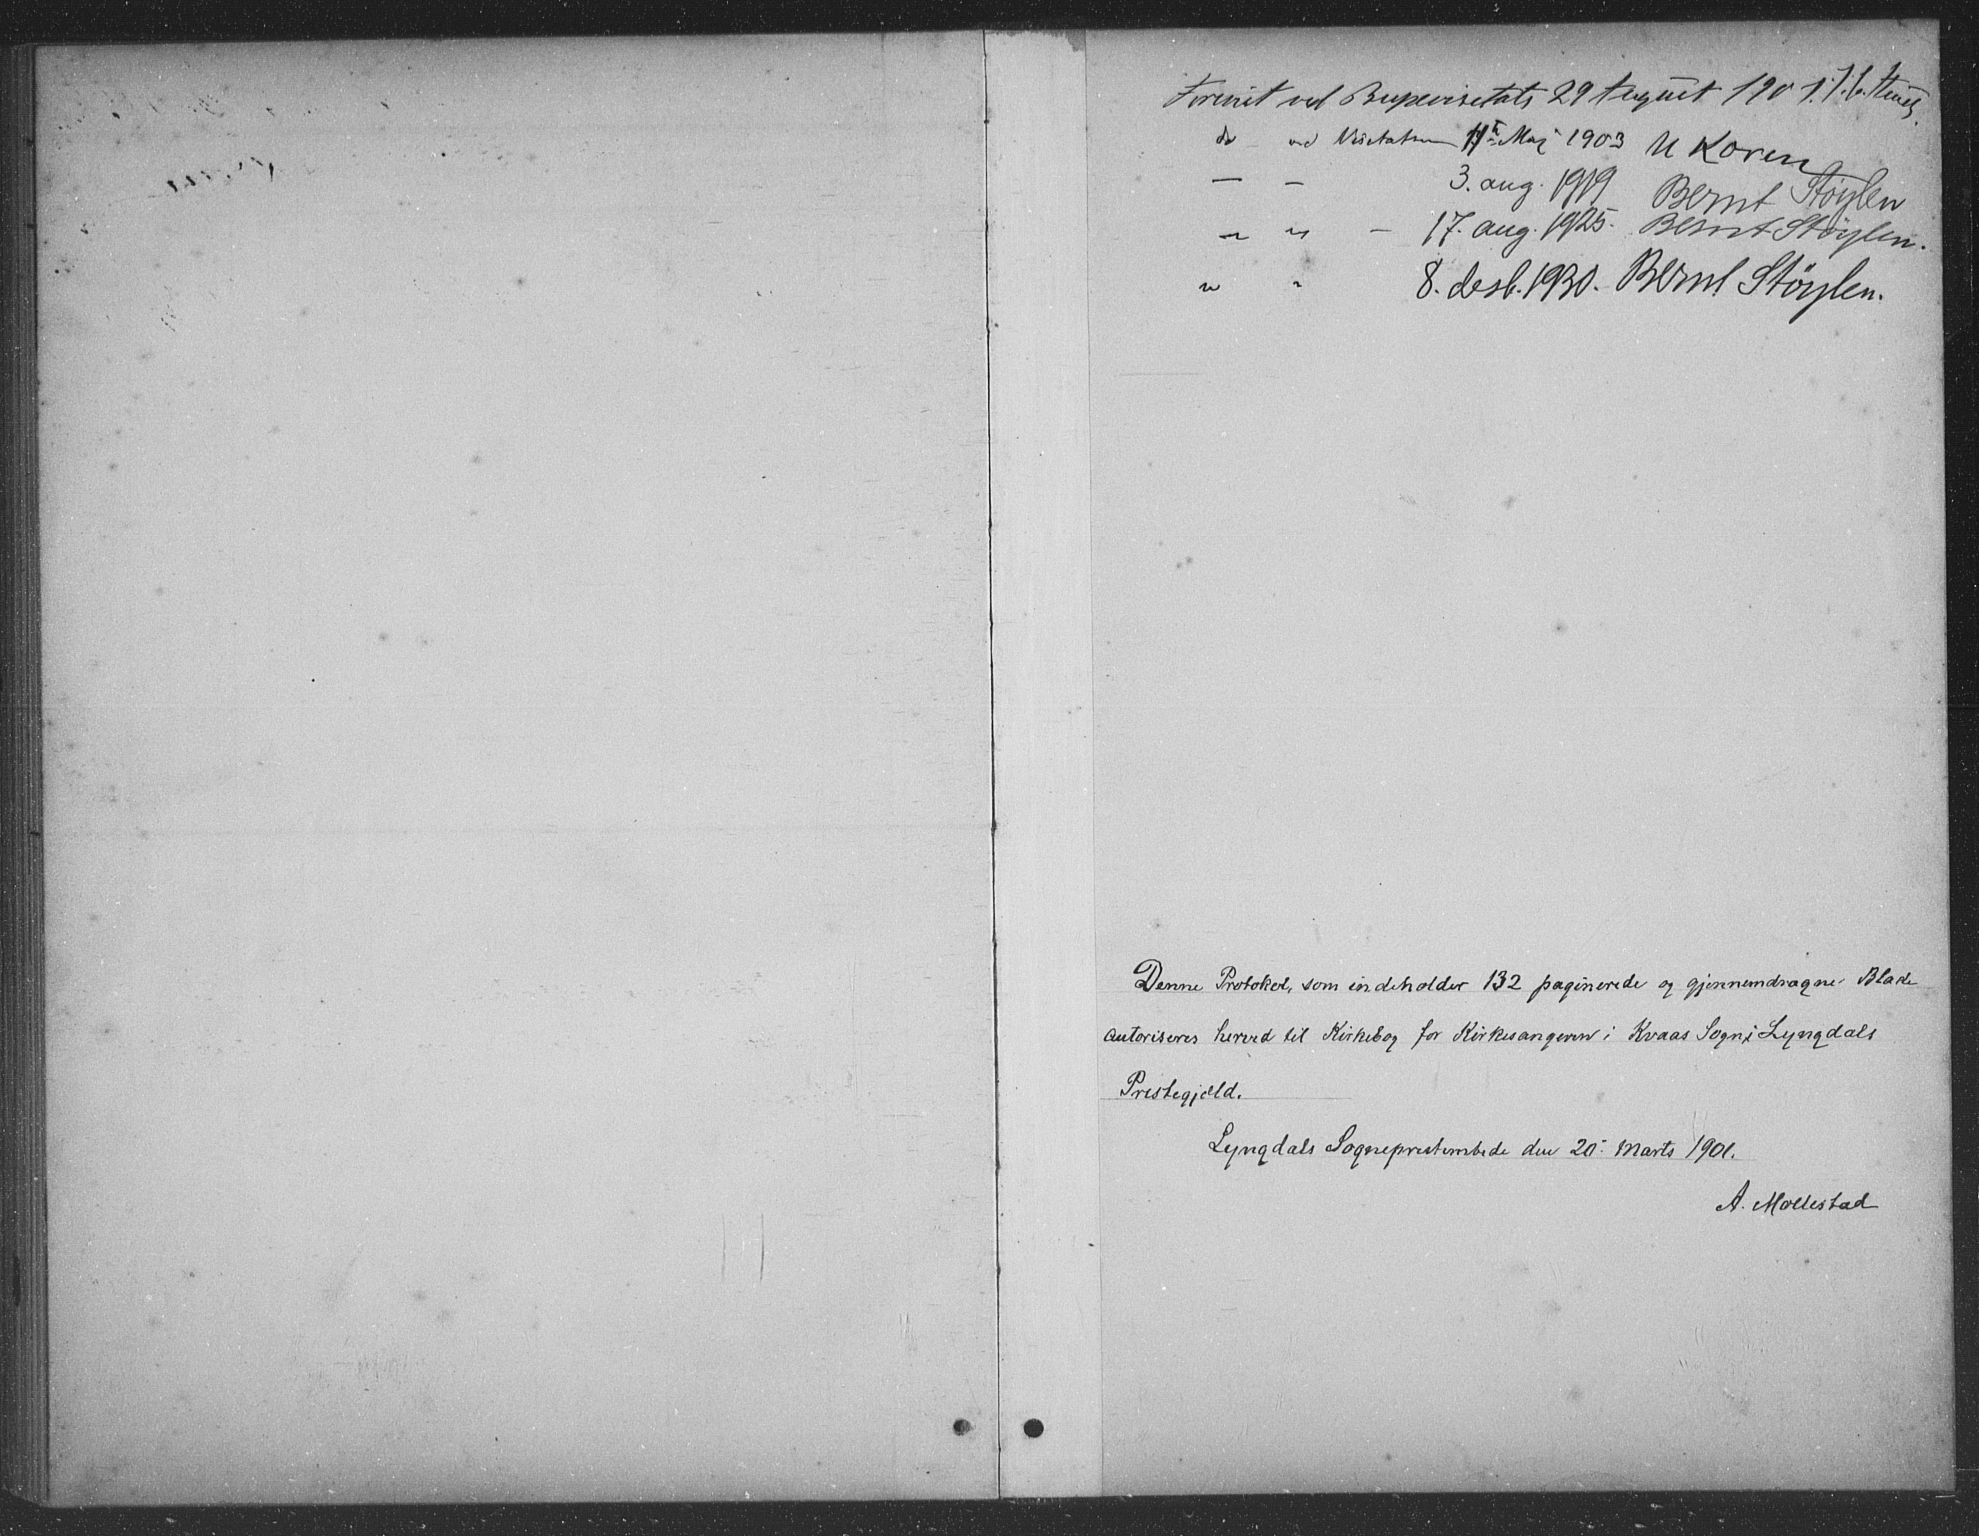 Forevist ved Bispevisitats 29 August 1901. J. C. Heuch.
do – ved Visitatsen 11te Maj 1903 U Koren
— — 3. aug. 1919 Bernt Støylen
" " – 17. aug. 1925. Bernt Støylen.
" " 8. desb. 1930. Bernt Støylen.
Denne Protokol, som indeholder 132 paginerede og gjennemdragne Blade
autoriseres herved til Kirkebog for Kirkesangeren i Kvaas Sogn i Lyngdals
Prestegjeld.
Lyngdals Sogneprestembede den 20. Marts 1901.
A. Mollestad